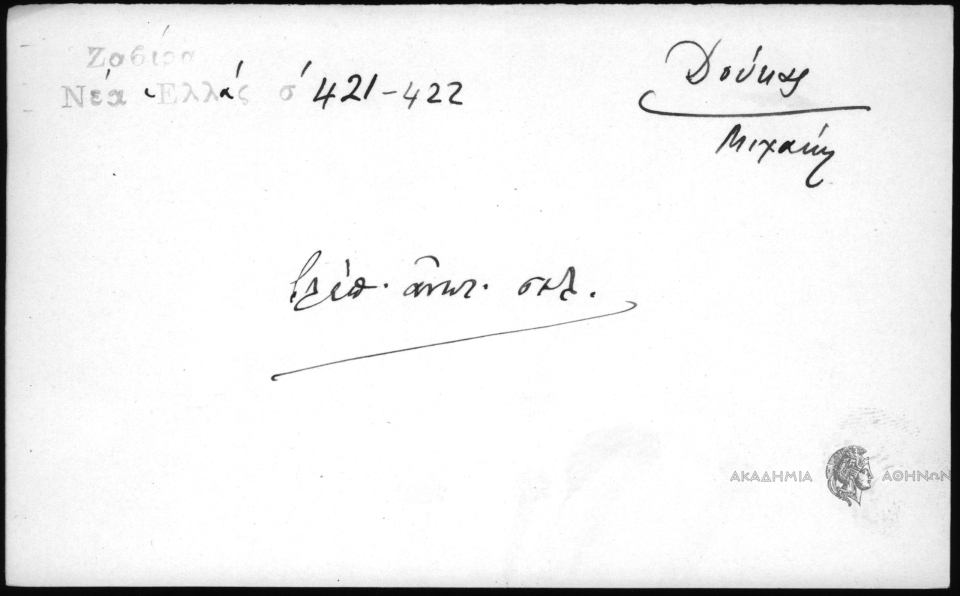 Ζαβίρα
Νέα Ἑλλάς σ 421-422
Δούκας
Μιχαήλ
βλέπ. ἀνωτ. σελ.
ΑΚΑΔΗΜΙΑ ΑΘΗΝΩΝ